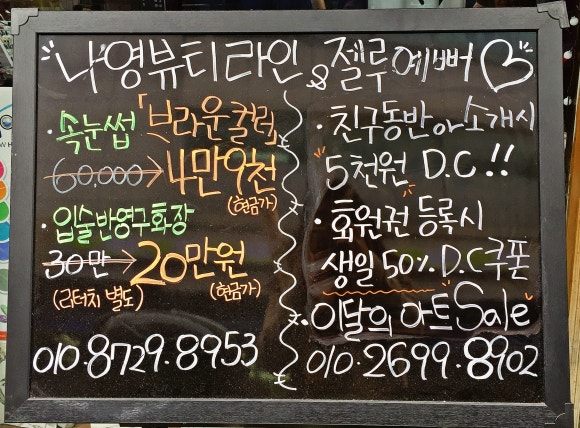 "나영뷰티라인"
· 속눈썹 「브라운컬러」
60,000 → 4만9천
(현금가)
· 입술반영구화장
30만 → 20만원
(리터치 별도) (현금가)
010.8729.8953
& 젤루예뻐♡
· 친구동반 or 소개시
"5천원 D.C !!
· 회원권 등록시
생일 50% D.C 쿠폰
· 이달의 아트 Sale
010.2699.8902